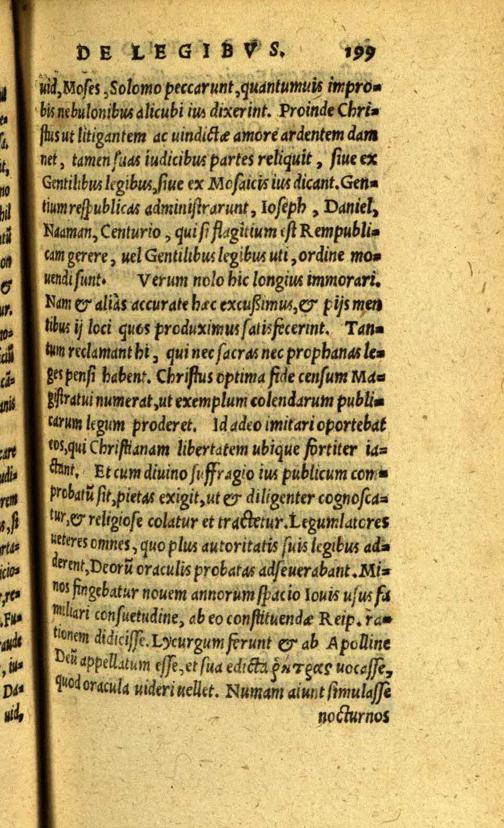 DE LEGIBVS. 199
uid, Moses, Solomo peccarunt, quantumuis impro-
bis nebulonibus alicubi ius dixerint. Proinde Chri-
stus ut litigantem ac uindictæ amore ardentem dam
net, tamen suas iudicibus partes reliquit, siue ex
Gentilibus legibus, siue ex Mosaicis ius dicant. Gen-
tium respublicas administrarunt, Ioseph, Daniel,
Naaman, Centurio, qui si flagitium est Rempubli-
cam gerere, uel Gentilibus legibus uti, ordine mo-
uendi sunt. Verum nolo hic longius immorari.
Nam & aliàs accurate hæc excußimus, & pijs men
tibus ij loci quos produximus satisfecerint. Tan-
tum reclamant hi, qui nec sacras nec prophanas le-
ges pensi habent. Christus optima fide censum Ma-
gistratui numerat, ut exemplum colendarum publi-
carum legum proderet. Id adeo imitari oportebat
eos, qui Christianam libertatem ubique fortiter ia-
ctant. Et cum diuino suffragio ius publicum com-
probatū sit, pietas exigit, ut & diligenter cognosca-
tur, & religiose colatur et tractetur. Legumlatores
ueteres omnes, quo plus autoritatis suis legibus ad-
derent, Deorū oraculis probatas adseuerabant. Mi-
nos fingebatur nouem annorum spacio Iouis usus fa
miliari consuetudine, ab eo constituendæ Reip. ra-
tionem didicisse. Lycurgum ferunt & ab Apolline
Deū appellatum esse, et sua edicta ῥήτρας uocasse,
quod oracula uideri uellet. Numam aiunt simulasse
nocturnos